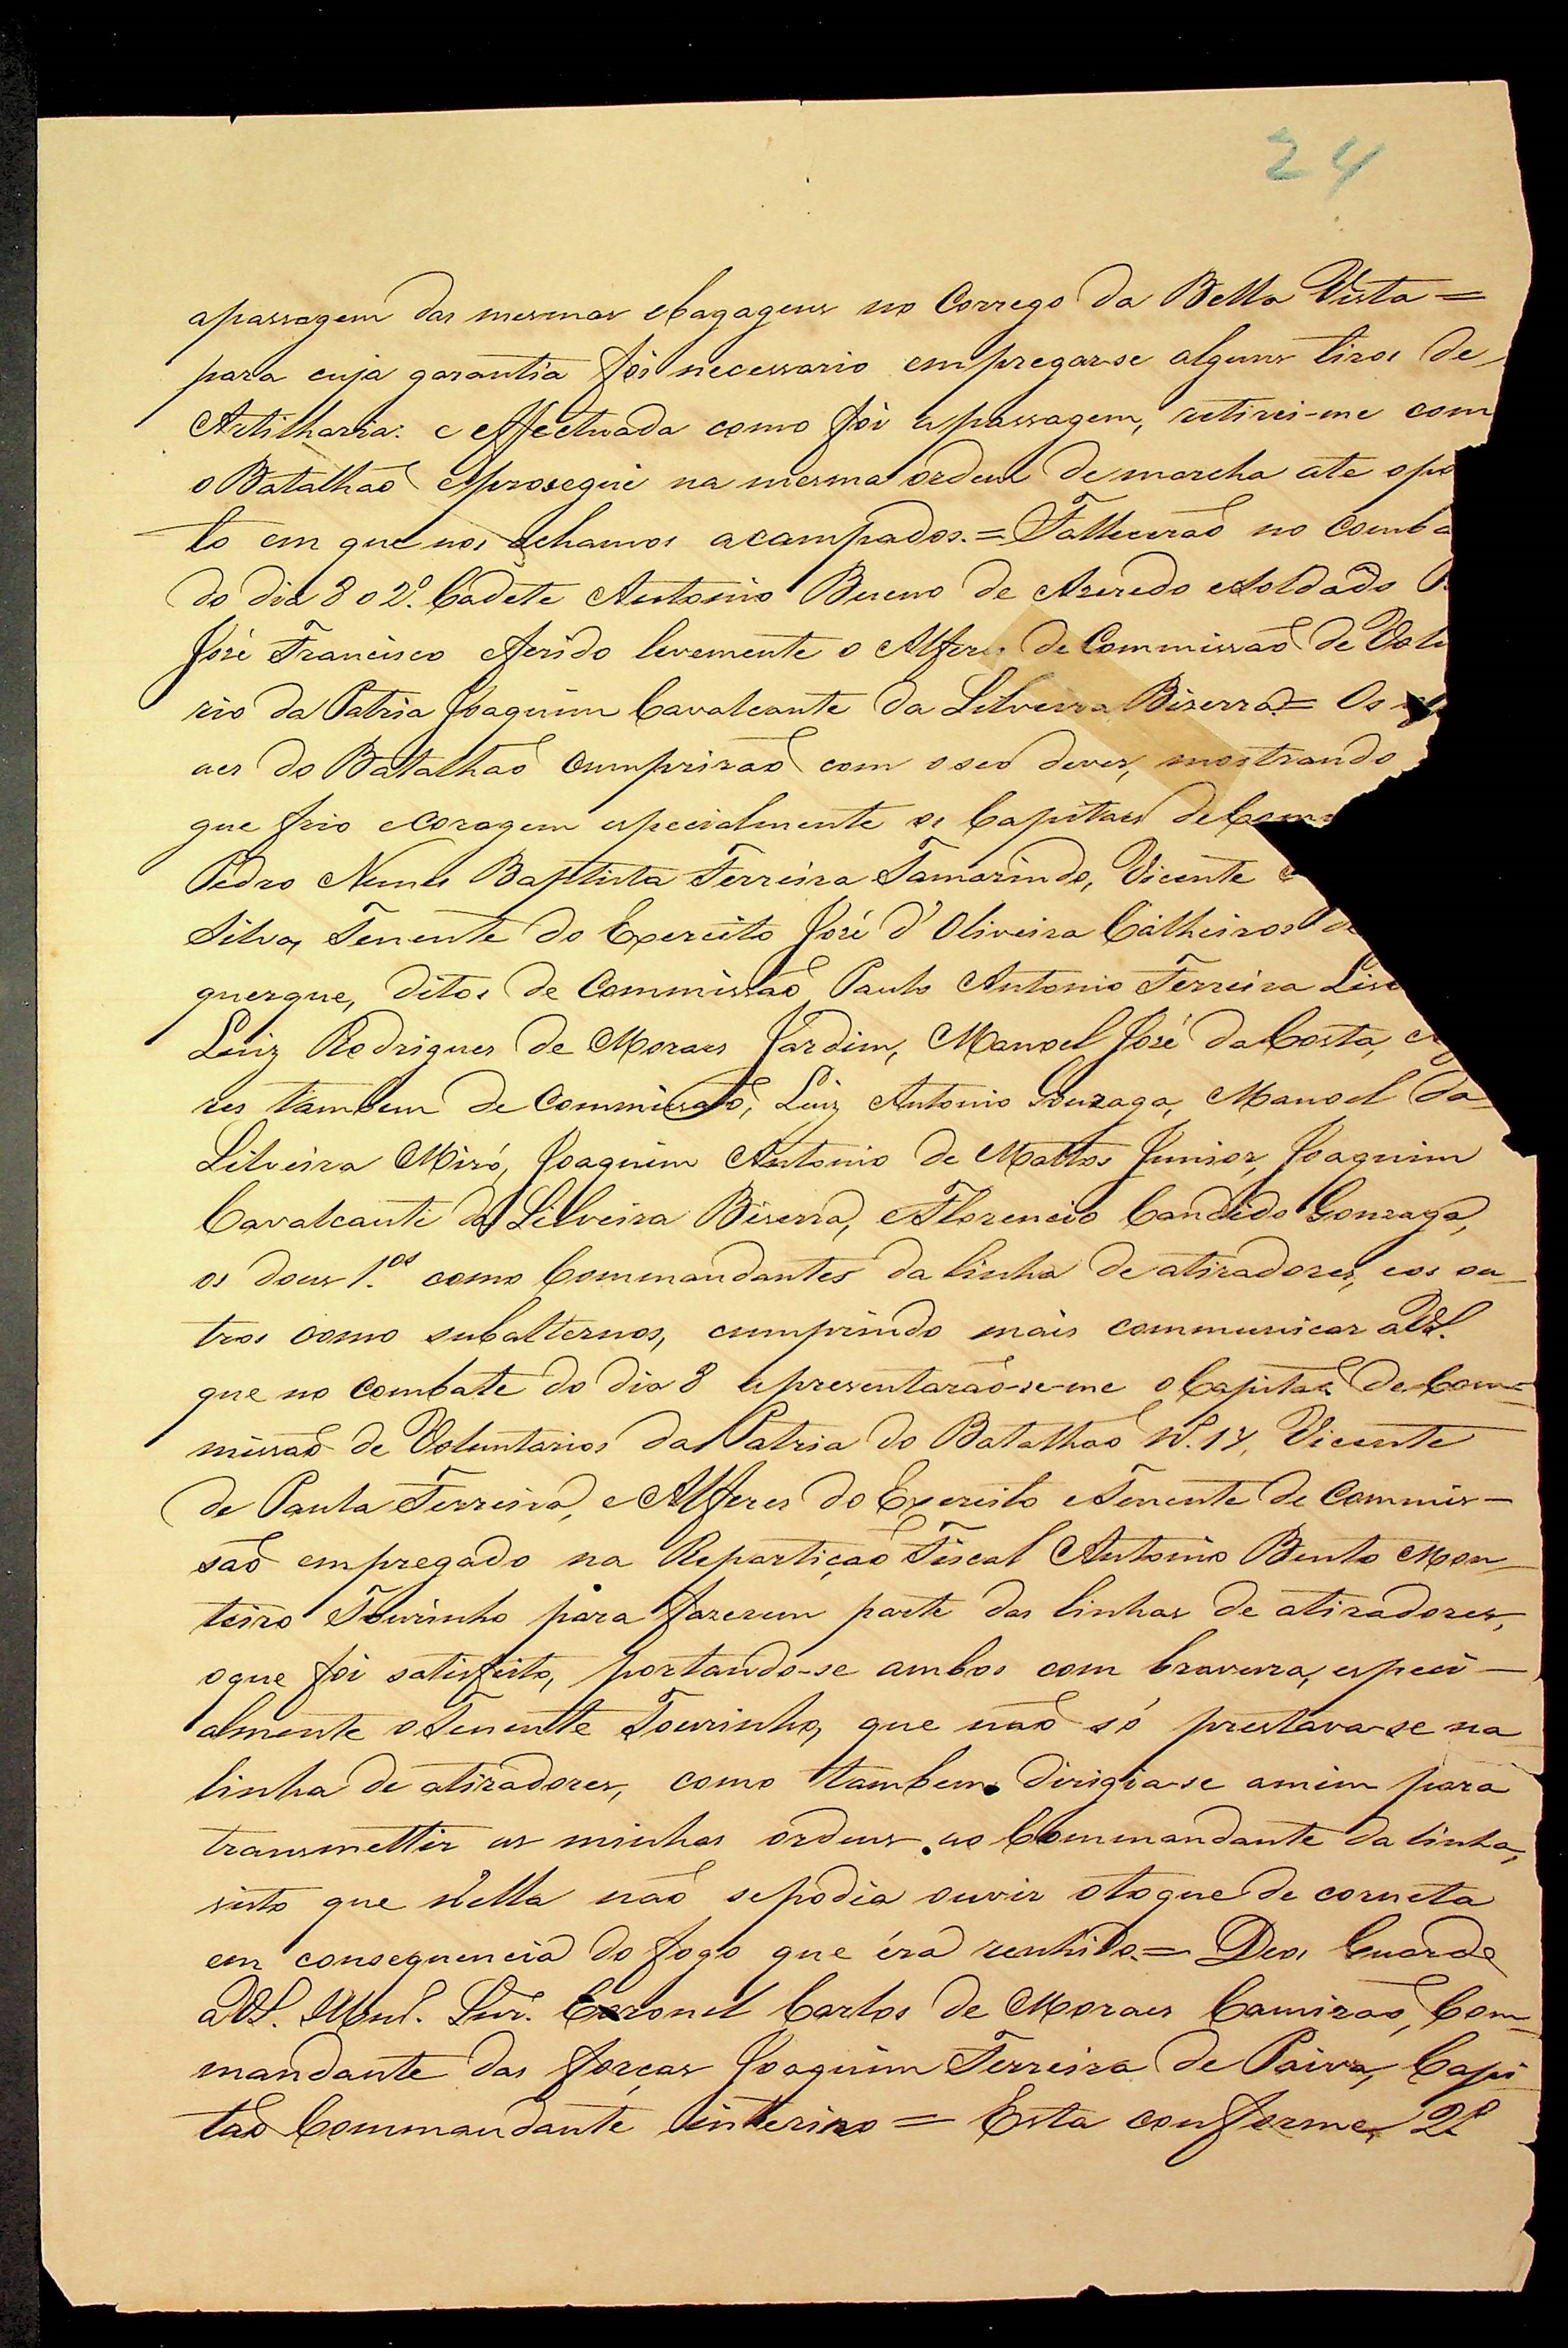 24
apassagem das mesmas ebagagens no Corrego da Bella Vista =
para cuja garantia foi necessario empregar-se alguns tiros de
Artilharia: e effectuada como foi apassagem, retirei-me com
o Batalhaõ eprosegui na mesma ordem de marcha ate opo
to em que nos achamos acampados. = Falleceraõ no comba
do dia 8 o 2º. Cadete Antonio Bueno de Azeredo esoldado
José Francisco eferido levemente o Alferes de Commissaõ de Volu
rio da Patria Joaquim Cavalcante da Silveira Biserra = Os
aes do Batalhaõ cumpriraõ com oseo dever, mostrando
gue frio ecoragem especialmente os Capitaes de Com
Pedro Nunes Baptista Ferreira Tamarindo, Vicente
Silva, Tenente do Exercito José d'Oliveira Calheiros de
querque, ditos de Commissaõ Paulo Antonio Ferreira
Luiz Rodrigues de Moraes Jardim, Manoel José da Costa,
res tambem de Commissaõ, Luiz Antonio Gonzaga, Manoel da
Silveira Miró, Joaquim Antonio de Mattos Junior, Joaquim
Cavalcanti da Silveira Biserra, eFlorencio Candido Gonzaga,
os dous 1.os como Commandantes da linha de atiradores, eos ou-
tros como subalternos, cumprindo mais communicar aVS.
que no combate do dia 8 apresentaraõ-se-me oCapitaõ de Com-
missaõ de Voluntarios da Patria do Batalhaõ N. 17, Vicente
de Paula Ferreira, e Alferes do Exercito eTenente de Commis-
saõ empregado na Repartiçaõ Fiscal Antonio Bento Mon-
teiro Tourinho para fazerem parte das linhas de atiradores,
oque foi satisfeito, portando-se ambos com bravura, especi-
almente oTenente Tourinho, que naõ só prestava-se na
linha de atiradores, como tambem dirigia-se amim para
transmettir as minhas ordens ao Commandante da linha,
visto que n'ella naõ sepodia ouvir otoque de corneta
em consequencia do fogo que éra renhido. = Deos Guarde
aVS. Snr. Coronel Carlos de Moraes Camisaõ, Com-
mandante das forças Joaquim Ferreira de Paiva, Capi-
taõ Commandante interino = Esta conforme, 2º